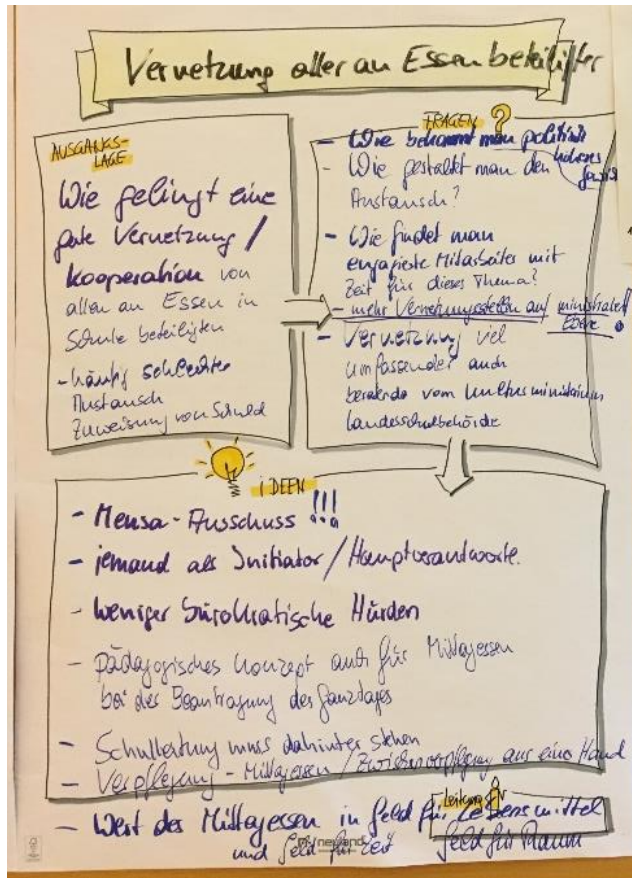 Vernetzung aller an Essen beteiligter
AUSGANGS-
LAGE
Wie gelingt eine
gute Vernetzung /
Kooperation von
allen an Essen in
Schule beteiligten
- häufig schlechter
Austausch
Zuweisung von Schuld
FRAGEN ?
- Wie bekommt man politisch
höheres
- Wie gestaltet man den
Austausch?
- Wie findet man
engagierte Mitarbeiter mit
Zeit für dieses Thema?
- mehr Vernetzungsstellen auf ministerialer
Ebene !
- Vernetzung viel
umfassender auch
beratende vom Kultusministerium
Landesschulbehörde
IDEEN
- Mensa-Ausschuss !!!
- jemand als Initiator / Hauptverantwortl.
- weniger bürokratische Hürden
- pädagogisches Konzept auch für Mittagessen
bei der Beantragung des Ganztages
- Schulleitung muss dahinter stehen
- Verpflegung - Mittagessen / Zwischenverpflegung aus eine Hand
Leitung
- Wert des Mittagessen in Geld für Lebensmittel
und Geld für Zeit Geld für Raum
neuland